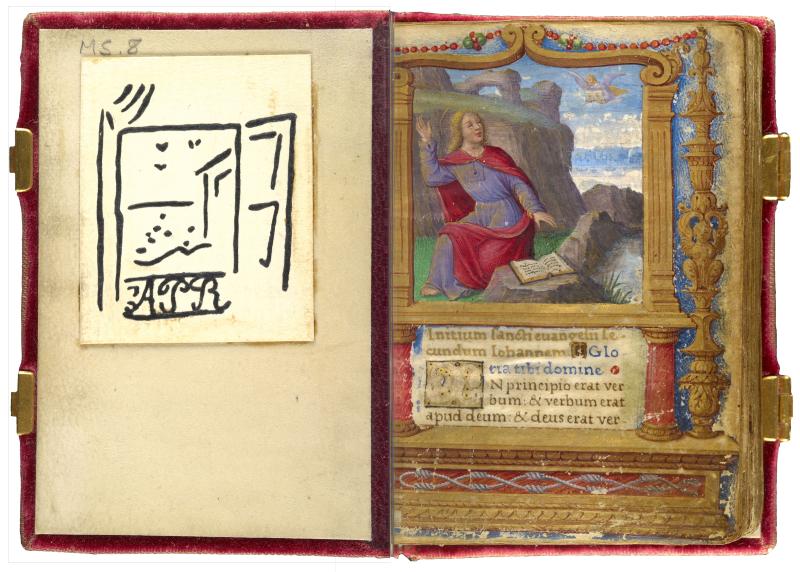 MS. 8
APR
Initium sancti euangelii se-
cundum Iohannem Glo
ria tibi domine
N principio erat ver
bum: & verbum erat
apud deum: & deus erat ver-